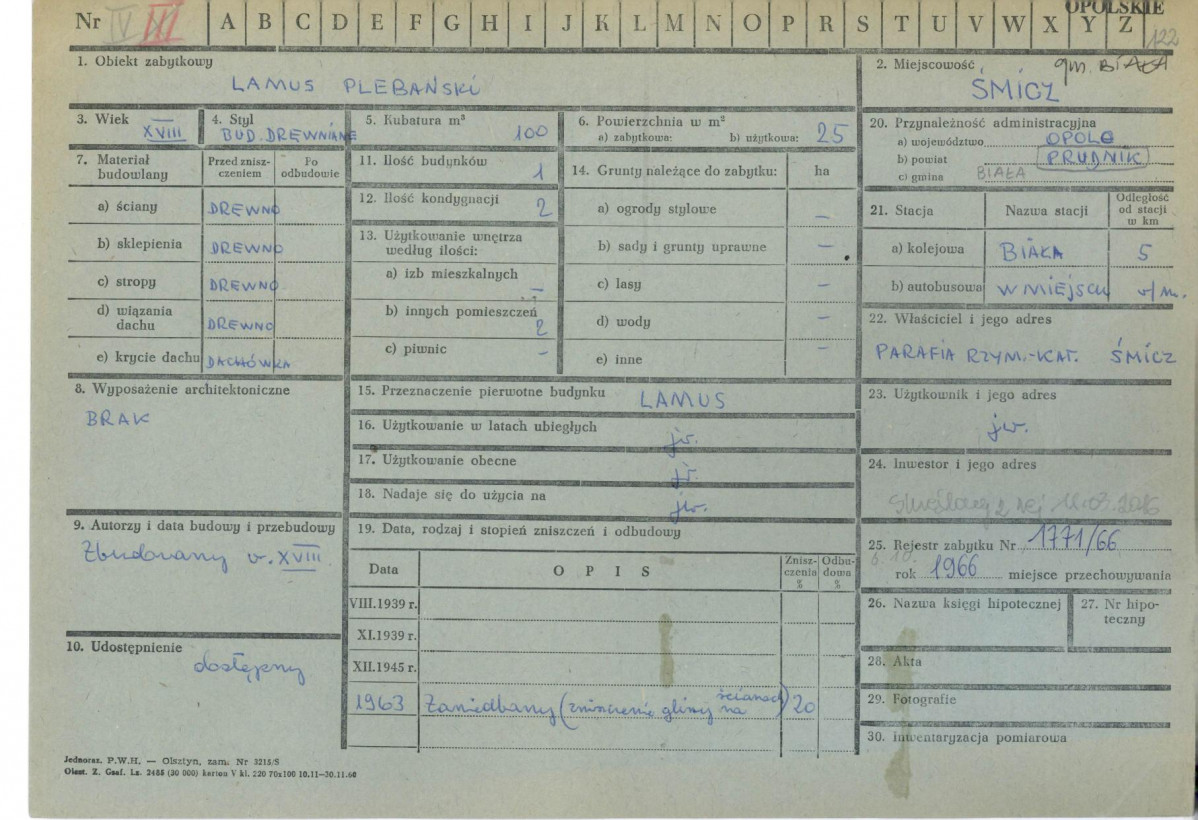 OPOLSKIE
Nr IV III A B C D E F G H I J K L M N O P R S T U V W X Y Z 122
1. Obiekt zabytkowy
LAMUS PLEBAŃSKI
2. Miejscowość gm. BIAŁA
ŚMICZ
3. Wiek
XVIII
4. Styl
BUD. DREWNIANE
5. Kubatura m³
100
6. Powierzchnia w m²
a) zabytkowa: b) użytkowa: 25
7. Materiał budowlany
Przed znisz-
czeniem
Po
odbudowie
a) ściany DREWNO
b) sklepienia DREWNO
c) stropy DREWNO
d) wiązania
dachu DREWNO
e) krycie dachu DACHÓWKA
8. Wyposażenie architektoniczne
BRAK
9. Autorzy i data budowy i przebudowy
Zbudowany w. XVIII
10. Udostępnienie
dostępny
11. Ilość budynków 1
12. Ilość kondygnacji 2
13. Użytkowanie wnętrza
według ilości:
a) izb mieszkalnych –
b) innych pomieszczeń 2
c) piwnic –
14. Grunty należące do zabytku: ha
a) ogrody stylowe –
b) sady i grunty uprawne –
c) lasy –
d) wody –
e) inne
15. Przeznaczenie pierwotne budynku LAMUS
16. Użytkowanie w latach ubiegłych jw.
17. Użytkowanie obecne jw.
18. Nadaje się do użycia na jw.
19. Data, rodzaj i stopień zniszczeń i odbudowy
Data OPIS Znisz-
czenia
% Odbu-
dowa
%
VIII.1939 r.
XI.1939 r.
XII.1945 r.
1963 Zaniedbany (zniszczenie gliny na ścianach) 20
20. Przynależność administracyjna
a) województwo OPOLE
b) powiat PRUDNIK
c) gmina BIAŁA
21. Stacja Nazwa stacji Odległość
od stacji
w km
a) kolejowa BIAŁA 5
b) autobusowa W MIEJSCU w/m.
22. Właściciel i jego adres
PARAFIA RZYM.-KAT. ŚMICZ
23. Użytkownik i jego adres
jw.
24. Inwestor i jego adres
25. Rejestr zabytku Nr 1771/66
rok 1966 miejsce przechowywania
26. Nazwa księgi hipotecznej
27. Nr hipo-
teczny
28. Akta
29. Fotografie
30. Inwentaryzacja pomiarowa
Jednoraz. P.W.H. — Olsztyn, zam. Nr 3215/S
Olszt. Z. Graf. Lz. 2485 (30 000) karton V kl. 220 70x100 10.11—30.11.60